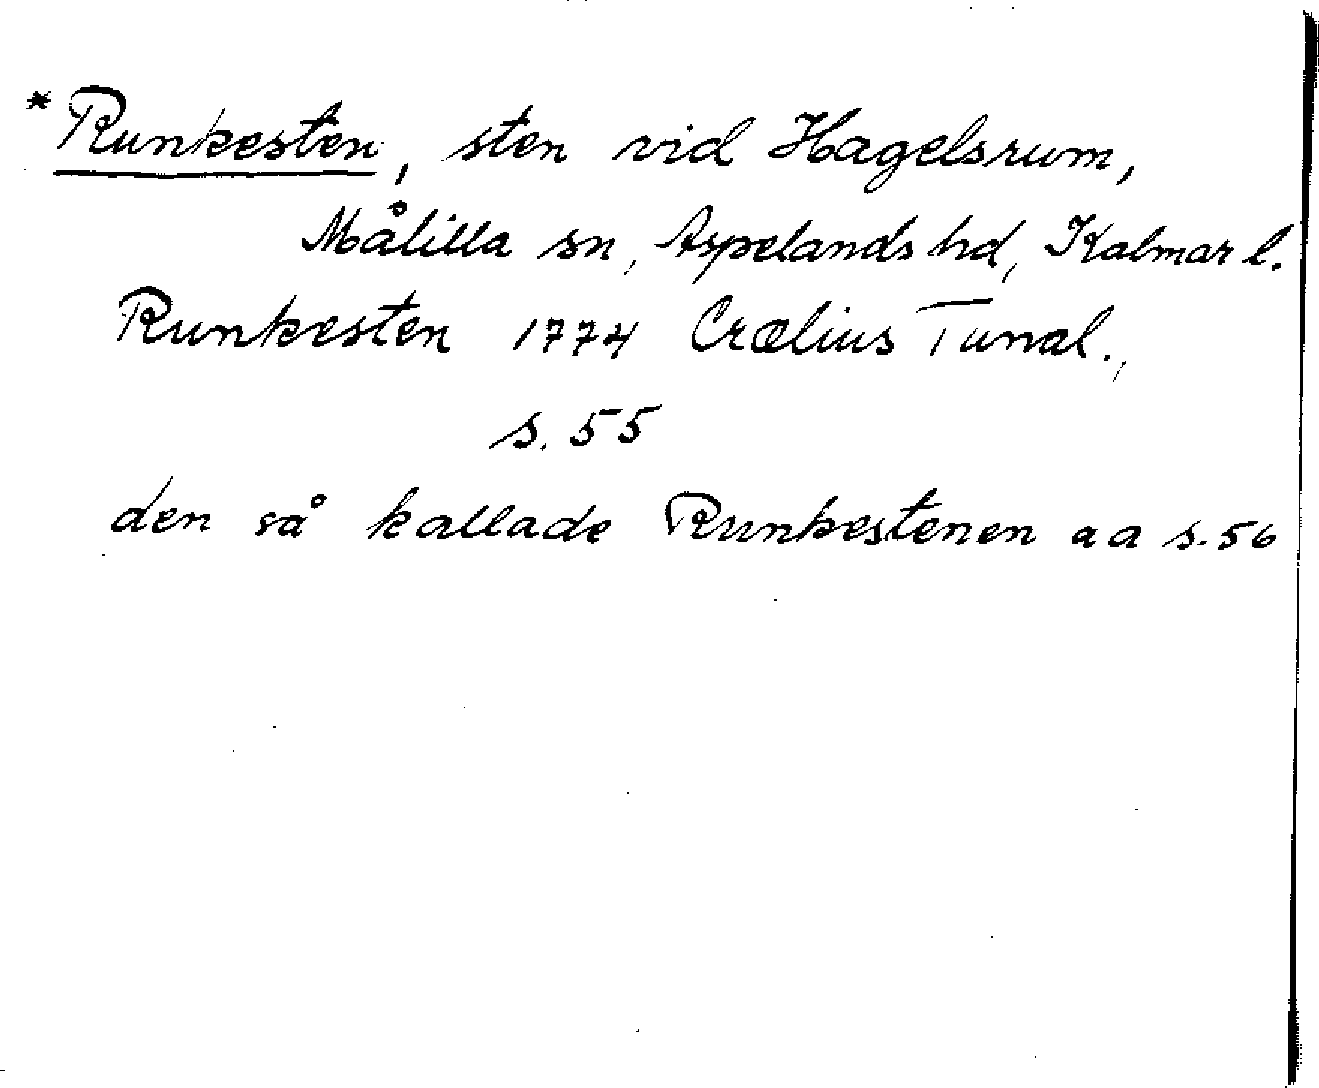 * Runkesten, sten vid Hagelsrum,
Målilla sn, Aspelands hd, Kalmar l.
Runkesten 1774 Crælius Tunal.,
s. 55
den så kallade Runkestenen aa s. 56